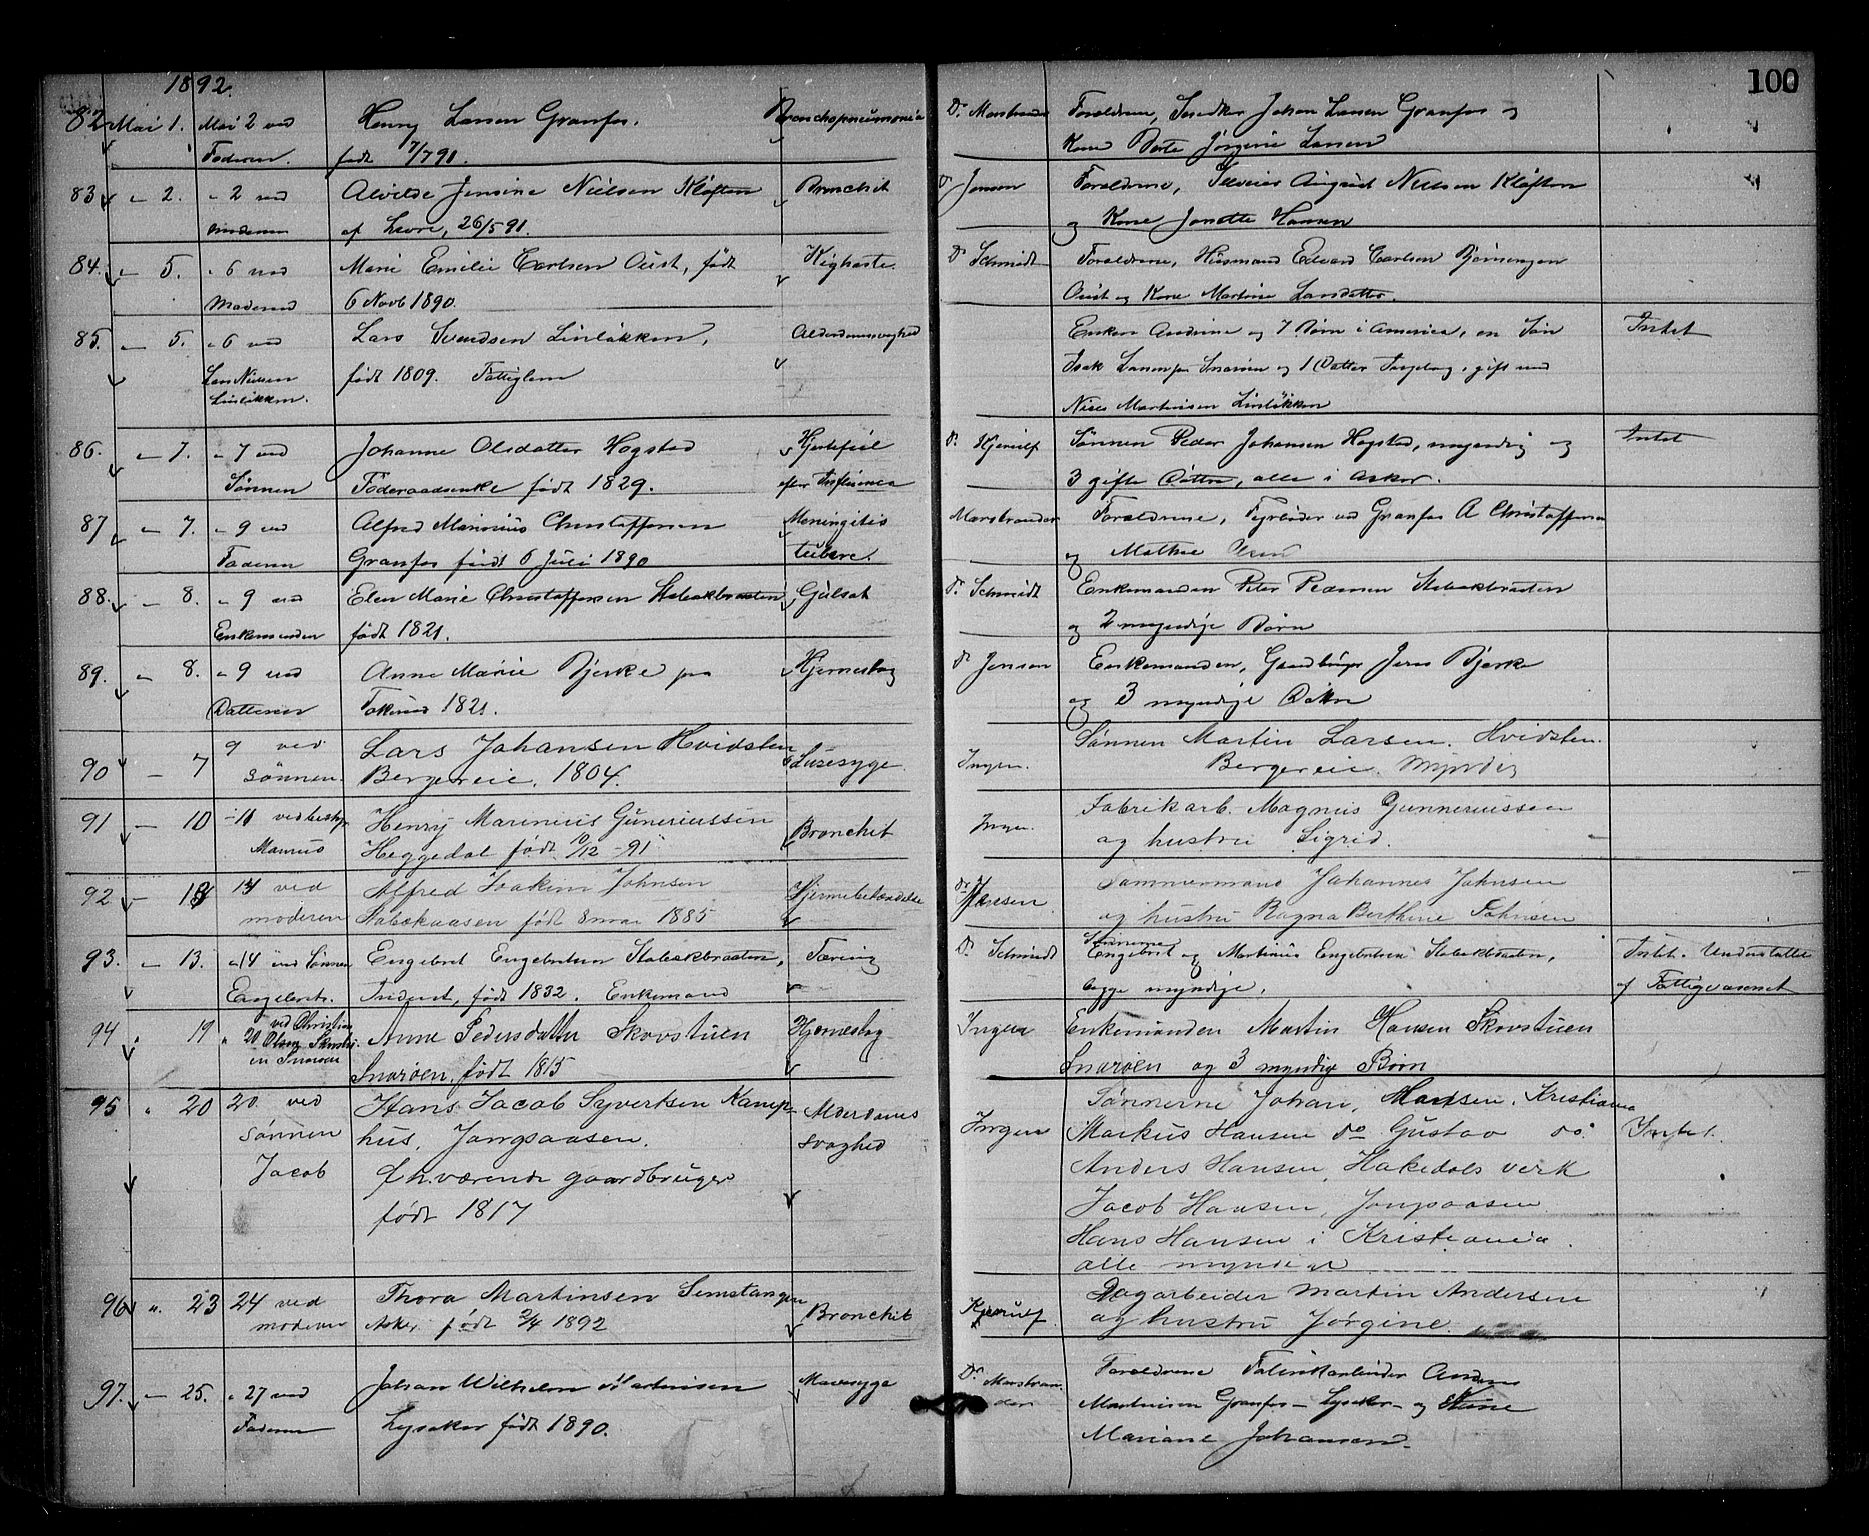 1892.
100
82 Mai 1. Mai 2 ved Henry Larsen Granfos. Bronchopneumonia Dr Marstrander Forældrene, Johan Larsen Granfos og
Faderen. født 7/7 91. Kone Dorte Jørgine Larsen
83 " 2. " 2 ved Alvilde Jensine Nielsen Kløften Bronchit Dr Jensen Forældrene, August Nielsen Kløften
moderen af Livre, 26/5 91. og Kone Janette Hansen
84. " 5. " 6 ved Marie Emilie Carlsen Oust, født Kighoste Dr Schmidt Forældrene, Husmand Edvard Carlsen
Moderen 6 Novb 1890. Oust og Kone Martine Larsdatter.
85. — 5. " 6 ved Lars Svendsen Linløkken, Alderdomssvaghed Enken Andrine og 7 Børn i America, en Søn Intet
Lars Nielsen født 1809. Fattiglem Isak Larsen paa Snarøen og 1 Datter gift med
Linløkken. Nils Martinsen Linløkken
86. — 7. " 7 ved Johanne Olsdatter Hogstad Hjertefeil Dr. Kjerulf Sønnen Peder Johansen Hogstad, myndig og Intet
Sønnen Føderaadsenke født 1829. efter Influenca 3 gifte Døttre, alle i Asker.
87 — 7. " 9 ved Alfred Marinius Christoffersen Meningitis Marstrander Forældrene, Fyrbøder ved Granfos A Christoffersen
Faderen Granfos født 6 Juli 1890 tuberc. og Mathea
88. — 8. " 9 ved Elen Marie Christoffersen Stabækbraaten Gulsot Dr. Schmidt Enkemanden Peter Pedersen Stabækbraaten
Enkemanden født 1821. og 2 myndige Børn
89. — 8. " 9 ved Anne Marie Bjerke paa Hjerneslag Dr Jensen Enkemanden, Gaardbruger Jens Bjerke
Datteren 1821. og 3 myndige Døtre
90 — 7 9 ved Lars Johansen Hvidsten Lusesyge Ingen. Sønnen Martin Larsen. Hvidsten.
sønnen. Bergereie. 1804. Bergereie. Myndig
91 — 10 -11 ved Henry Marinius Guneriussen Bronchit Ingen. Fabrikarb. Magnus Gunneriussen
Heggedal født 10/12 -91 og hustru Sigrid.
92 — 13 14 ved Alfred Joakim Johnsen Hjernebetændelse dr Jensen Tømmermand Johannes Johnsen
moderen Stabekaasen født 8 mai 1885 og hustru Ragna Berthine Johnsen
93. — 13. " 14 ved Sønnen Engebret Engebretsen Stabækbraaten, Tæring Dr Schmidt Sønnerne Engebret og Martinius Engebretsen Stabækbraaten, Intet. Understøttet
Engebret. født 1832. Enkemand begge myndige. af Fattigvæsenet
94 " 19 " 20 ved Christian Olsen Anne Pedersdatter Skovstuen Hjerneslag Ingen Enkemanden Martin Hansen Skovstuen
Snarøen Snarøen, født 1815 Snarøen og 3 myndige Børn
95 " 20 20 ved Hans Jacob Syvertsen Kamp- Alderdoms Ingen Sønnerne Johan Hansen. Kristiania
sønnen hus, Jongsaasen. svaghed Markus Hansen do Gustav do. Intet.
Jacob f.h.værende gaardbruger Anders Hansen, Hakedals verk
født 1817 Jacob Hansen, Jongsaasen
Hans Hansen i Kristiania.
alle myndige
96 ". 23 24 ved Thora Martinsen Semstangen Bronchit Kjerulf Dagarbeider Martin Andersen
moderen Asker født 2/4 1892 og hustru Jørgine.
97. — 25. " 27 ved Johan Wilhelm Martinsen Mavesyge Dr. Marstrander Forældrene Fabrikarbeider Anders
Faderen Lysaker født 1890. Martinsen Granfos - Lysaker - og
Mariane Johansen.